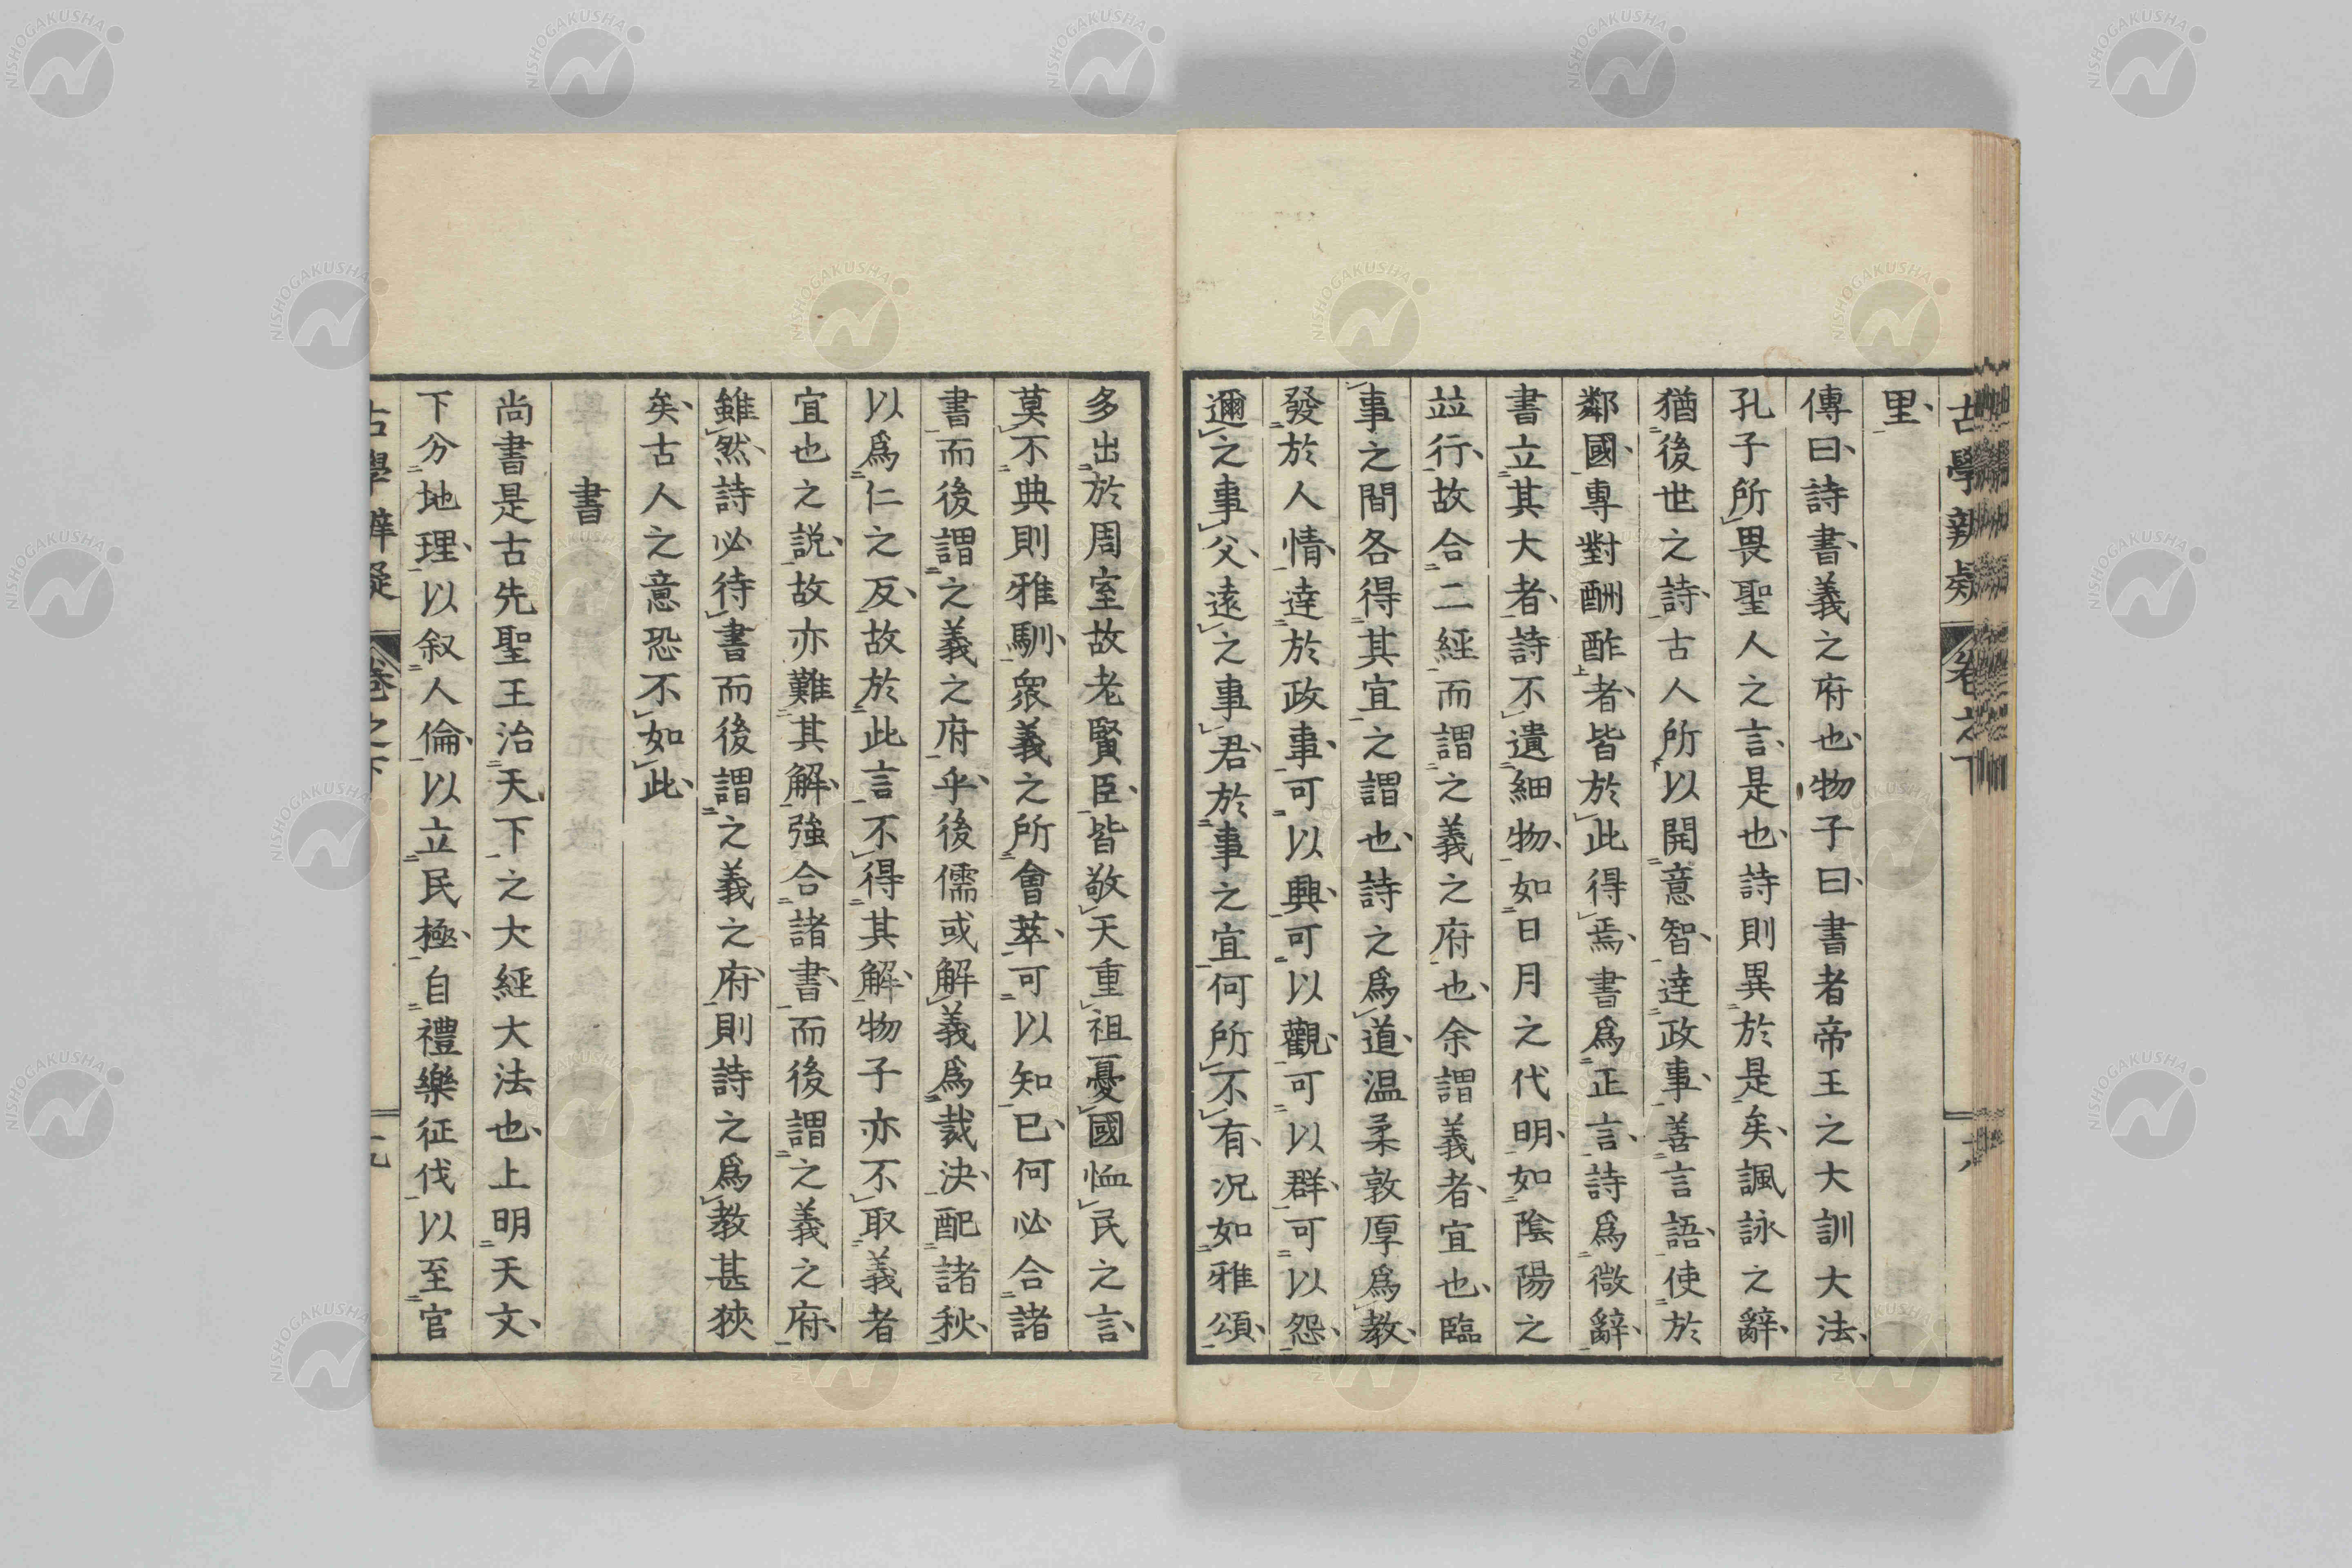 古學辨疑 卷之下
里
傳曰詩書義之府也物子曰書者帝王之大訓大法
孔子所畏聖人之言是也詩則異於是矣諷詠之辭
猶後世之詩古人所以開意智達政事善言語使於
鄰國專對酬酢者皆於此得焉書爲正言詩爲微辭
書立其大者詩不遺細物如日月之代明如陰陽之
竝行故合二經而謂之義之府也余謂義者宜也臨
事之間各得其宜之謂也詩之爲道温柔敦厚爲教
發於人情達於政事可以興可以觀可以群可以怨
邇之事父遠之事君於事之宜何所不有况如雅頌
多出於周室故老賢臣皆敬天重祖憂國恤民之言
莫不典則雅馴衆義之所會萃可以知已何必合諸
書而後謂之義之府乎後儒或解義爲裁決配諸秋
以爲仁之反故於此言不得其解物子亦不取義者
宜也之説故亦難其解強合諸書而後謂之義之府
雖然詩必待書而後謂之義之府則詩之爲教甚狹
矣古人之意恐不如此
書
尚書是古先聖王治天下之大經大法也上明天文
下分地理以叙人倫以立民極自禮樂征伐以至官
古學辨疑 卷之下
NISHOGAKUSHA